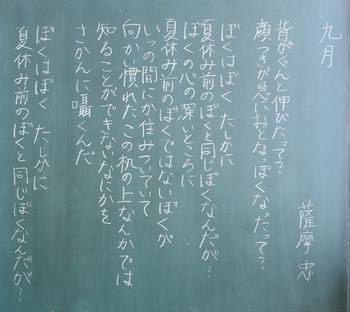 九月
薩摩忠
背がぐんと伸びたって?
顔つきが急におとなっぽくなったって?
ぼくはぼく たしかに
夏休み前のぼくと同じぼくなんだが?
ぼくの心の深いところに
夏休み前のぼくではないぼくが
いつの間にか住みついていて
向かい慣れたこの机の上なんかでは
知ることができないなにかを
さかんに囁くんだ
ぼくはぼく たしかに
夏休み前のぼくと同じぼくなんだが?